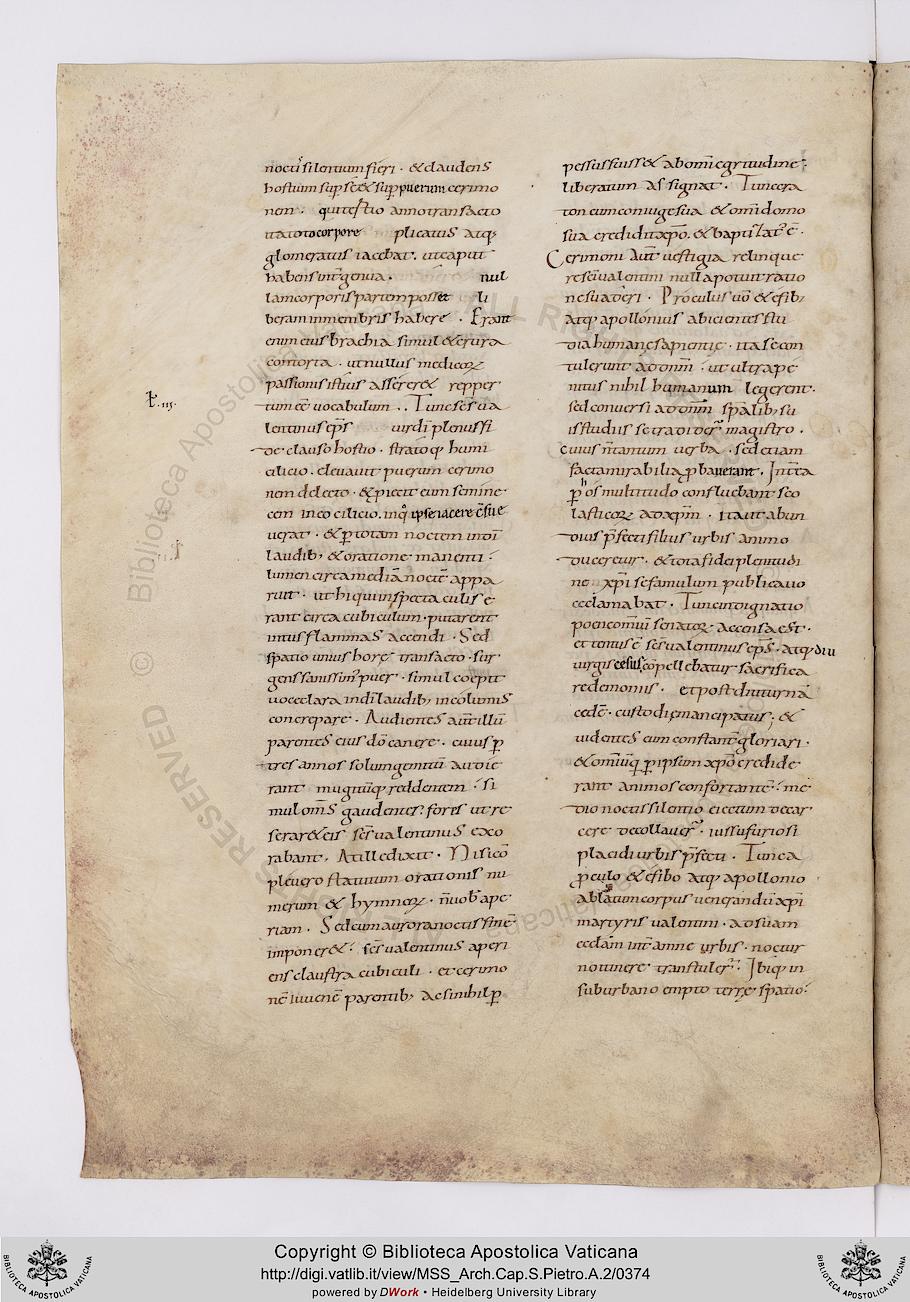 noctis silentium fieri · & claudens
hostium sup se & sup puerum cerimo
nem · qui testio anno transacto
ita toto corpore plicatus atq;
glomeratus iacebat · ut caput
habens int genua · nul
lam corporis partem posset li
beram in membris habere · Erant
enim eius brachia simul & crura
contorta · ut nullus medicorum
passionis istius asserer& repper
tum eē uocabulum · Tunc scs ua
lentinus eps uiridi plenissi
de · clauso hostio · stratoq humi
cilicio · eleuauit puerum cerimo
nem de lecto · & piecit eum semine
cem in eo cilicio · inq ipse iacere csue
uerat · & p totam noctem in di
laudib; & oratione manenti ·
lumen circa mediā noctē appa
ruit · ut hi qui in specta culis e
rant circa cubiculum · putarent
intus flammas accendi · Sed
spatio unius hore transacto · sur
gens sanissim' puer · simul coepit
uoce clara in di laudib; incolumis
concrepare · Audientes aut illū
parentes eius dō canere · cuius p
tres annos solum gemitū audie
rant mugitūq reddentem · si
mul oms gaudentes · fores ut re
serar& eis scs ualentinus exo
rabant · At ille dixit · Nisi cō
pleuero statutum orationis nu
merum & hymnorum · n uobis ape
riam · Sed cum aurora noctis finē
imponer& · scs ualentinus aperi
ens claustra cubiculi · et cerimo
nē iuuenē parentib; ac si nihil p
ꝉ. iii.
pessus fuiss& ab omi egritudine ·
liberatum assignat · Tunc cra
ton cum coniuge sua & omi domo
sua credidit xpo · & baptizat' ē ·
Cerimoni aut uestigia relinque
re scī ualentini nulla potuit ratio
ne suaderi · Proculus uō & efib;
atq apollonius abicientes stu
dia humane sapientie · ita se con
tulerunt ad dnm · ut ultra pe
nitus nihil humanum legerent ·
sed conuersi ad dnm spalib; su
is studiis se tradider' magistro ·
cuius n tantum uerba · sed etiam
facta mirabilia pbauerant · Int ea
p hos multitudo confluebant sco
lasticorum ad xpm · Ita ut abun
dius pfecti filius urbis animo
duceretur · & tota fidei plenitudi
ne · xpi se famulum publica uo
ce clamabat · Tunc indignatio
poene omiū senatorum accensa est ·
et tentus ē scs ualentinus eps · atq diu
uirgis cesus, cōpellebatur sacrifica
re demoniis · et post diuturnā
cedē · custodie mancipatus ; &
uidentes eum constant gloriari ·
& omiūq p ipsum xpo credide
rant animos confortantē · me
dio noctis silentio eiectum de car
cere decollauer' · iussu furiosi
placidi urbis pfecti · Tunc a
pculo & efibo atq apollonio
ablatum corpus uenerandū xpi
martyris ualentini · ad suam
ecclam interamne urbis · noctur
no itinere transtuler' · Ibiq in
suburbano empto terre spatio ·
Copyright © Biblioteca Apostolica Vaticana
http://digi.vatlib.it/view/MSS_Arch.Cap.S.Pietro.A.2/0374
powered by DWork • Heidelberg University Library